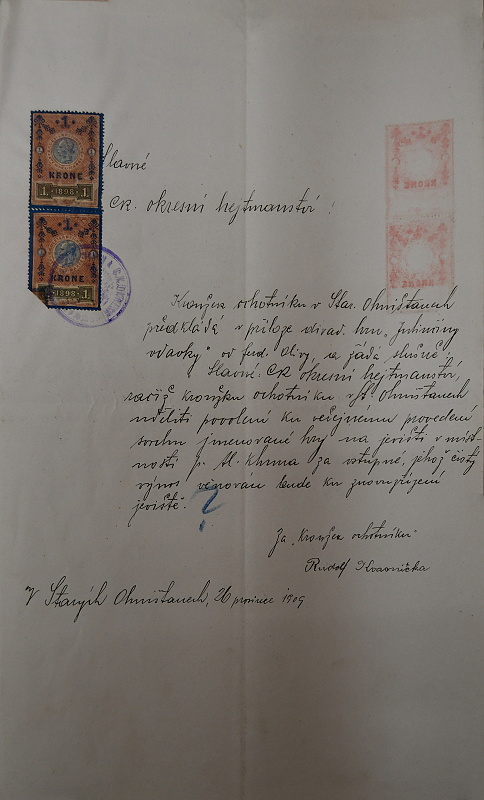 1
KRONE
1 1898 1
1
KRONE
1 1898 1
Slavné
CK. okresní hejtmanství!
Kroužek ochotníků v Star. Ohništanech
předkládá v příloze divad. hru „Julinčiny
vdavky" od Ferd. Olivy, a žádá slušně:
Slavné CK okresní hejtmanství,
račiž kroužku ochotníků v St. Ohništanech
uděliti povolení ku veřejnému provedení
svrchu jmenované hry na jevišti v míst-
nosti p. Al. Khma za vstupné, jehož čistý
výnos věnován bude ku znovuzřízení
jeviště.
Za „Kroužek ochotníků"
Rudolf Kvasnička
V Starých Ohništanech, 26 prosince 1909